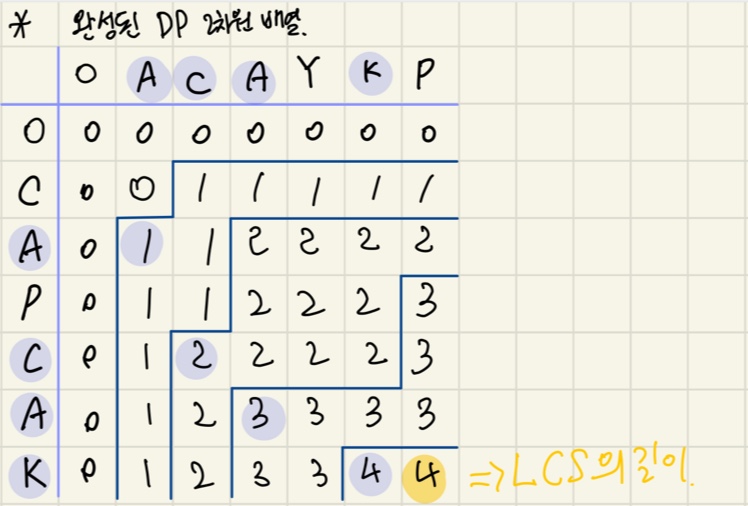 * 완성된 DP 2차원 배열.
0 A C A Y K P
0 0 0 0 0 0 0 0
C 0 0 1 1 1 1 1
A 0 1 1 2 2 2 2
P 0 1 1 2 2 2 3
C 0 1 2 2 2 2 3
A 0 1 2 3 3 3 3
K 0 1 2 3 3 4 4 => LCS의 길이.